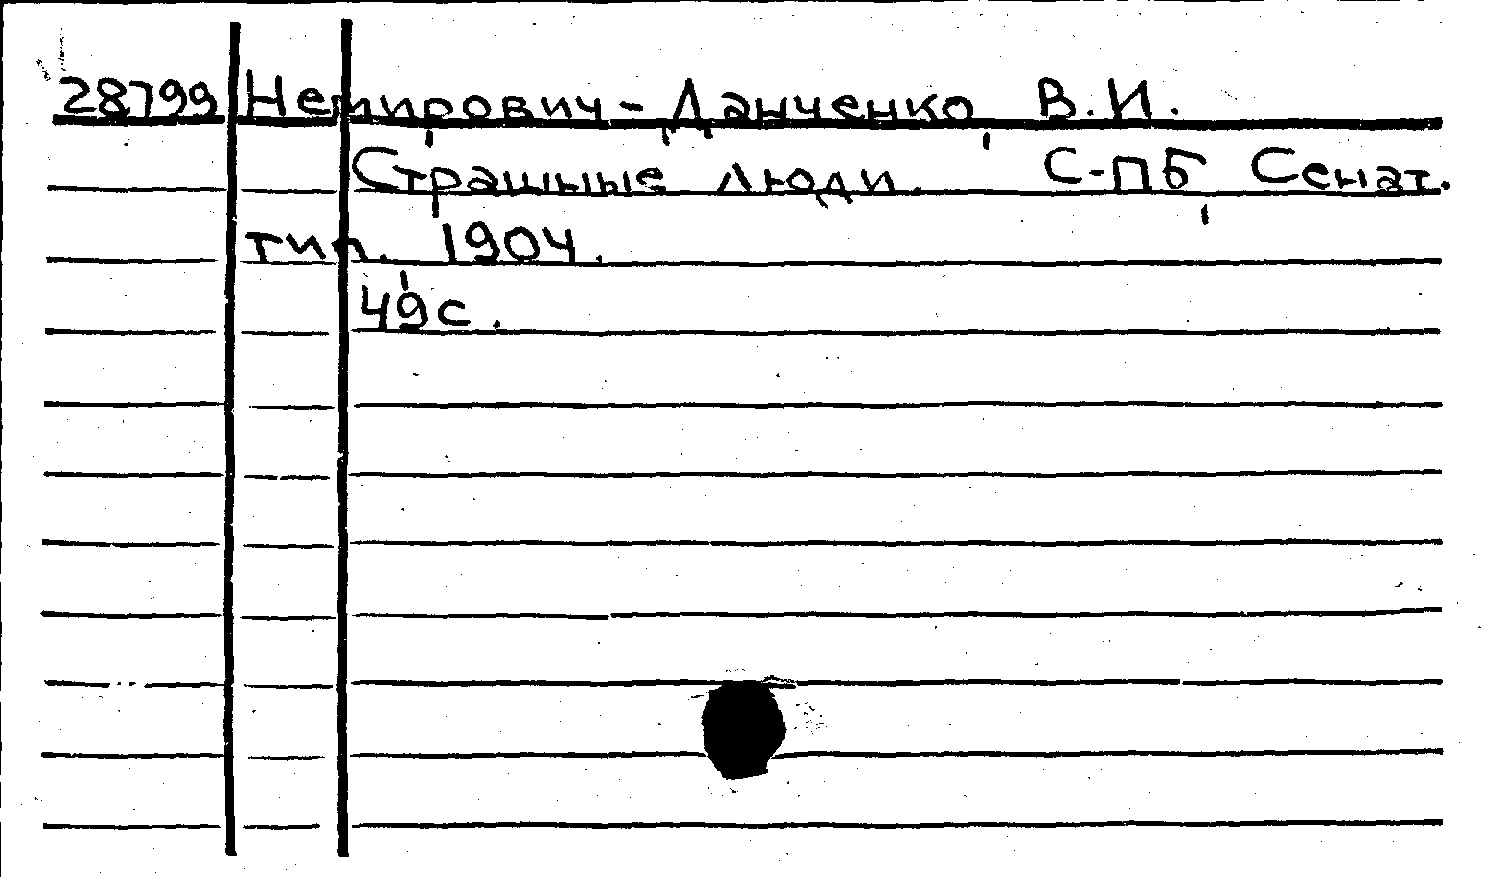 28799 Немирович-Данченко, В.И.
Страшные люди. С-ПБ, Сенат.
тип. 1904.
49с.